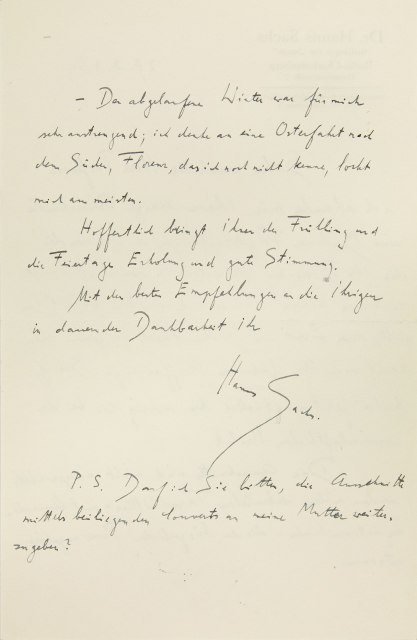 – Der abgelaufene Winter war für mich
sehr anstrengend; ich denke an eine Osterfahrt nach
dem Süden, Florenz, das ich noch nicht kenne, lockt
mich am meisten.
Hoffentlich bringt Ihnen der Frühling und
die Feiertage Erholung und gute Stimmung.
Mit den besten Empfehlungen an die Ihrigen
in dauernder Dankbarkeit Ihr
Hanns Sachs.
P. S. Darf ich Sie bitten, die Ausschnitte
mittels beiliegenden Couverts an meine Mutter weiter-
zugeben?